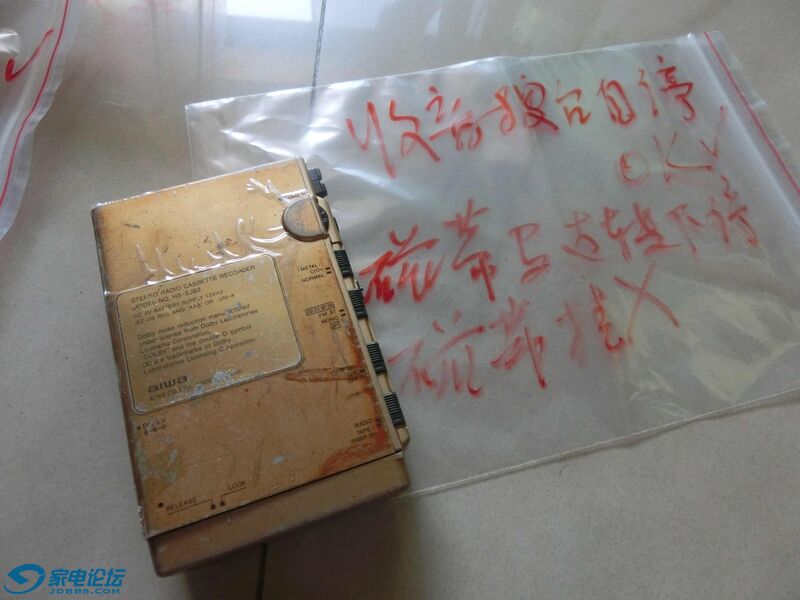 收音搜台自停
OK√
磁带马达转不停
磁带挂X
METAL/
CrO2
NORMAL
STEREO RADIO CASSETTE RECORDER
MODEL NO. HS-SJ92
DC 3V BATTERY SUPPLY 1.5V×2
Dolby noise reduction manufactured
under license from Dolby Laboratories
Licensing Corporation.
"DOLBY" and the double-D symbol
are trademarks of Dolby
Laboratories Licensing Corporation
aiwa
FM ST
MONO
DC 3V
RADIO
TAPE
RELEASE
LOCK
家电论坛
JDBBS.COM